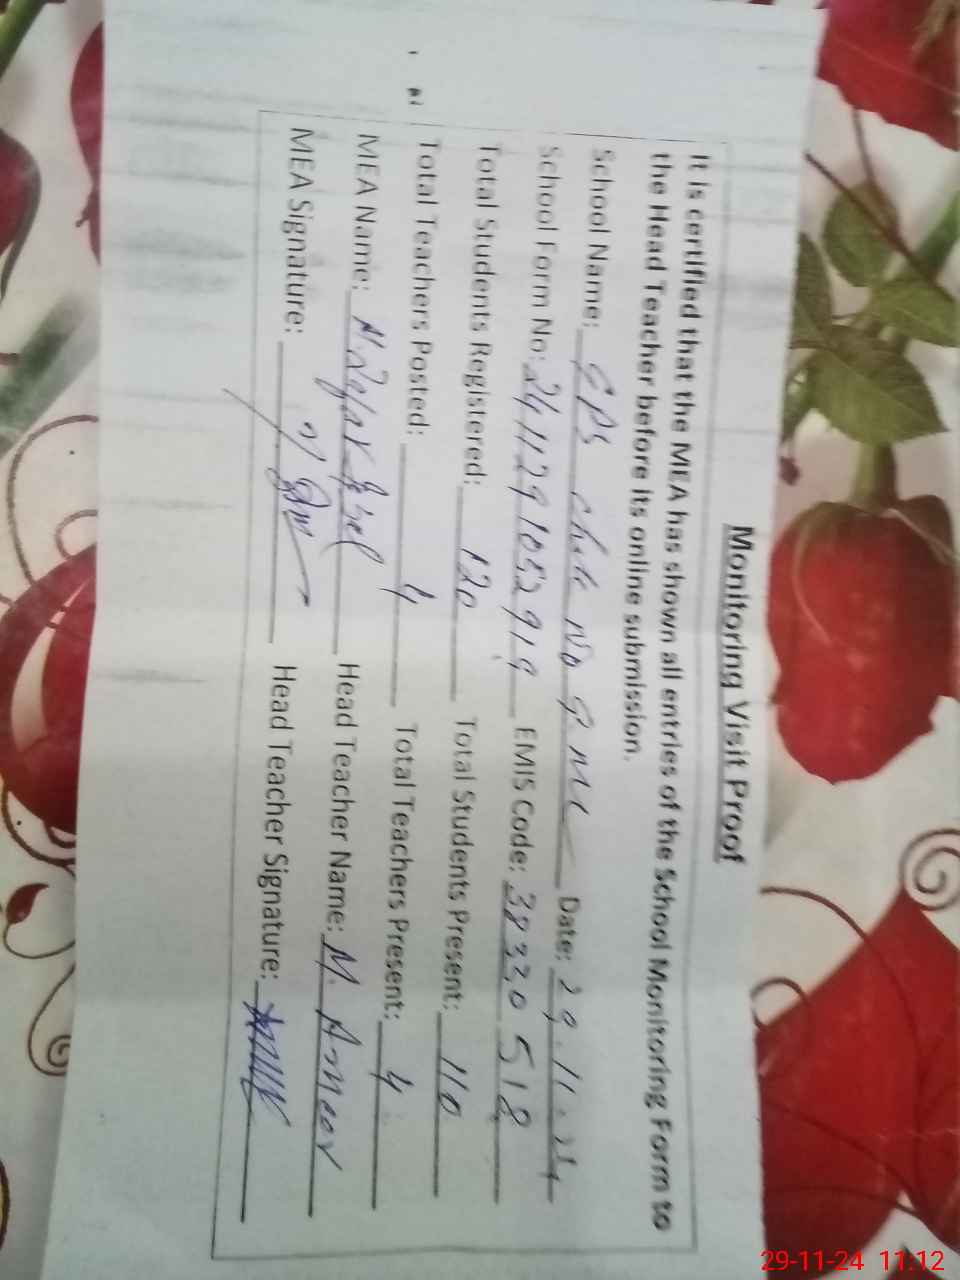 Monitoring Visit Proof
It is certified that the MEA has shown all entries of the School Monitoring Form to
the Head Teacher before its online submission.
School Name: GPS Chak No 9 ML Date: 29.11.24
School Form No: 2411291052919 EMIS Code: 38330518
Total Students Registered: 120 Total Students Present: 110
Total Teachers Posted: 4 Total Teachers Present: 4
MEA Name: Head Teacher Name: M.
MEA Signature: Head Teacher Signature:
29-11-24 11:12